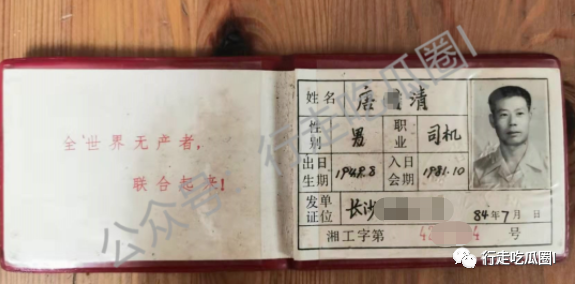 全世界无产者，
联合起来！
姓名 唐 清
性别 男 职业 司机
出生日期 1948.8 入会日期 1981.10
发证单位 长沙 84年7月 日
湘工字第 4 4 号
公众号：行走吃瓜圈I
行走吃瓜圈I